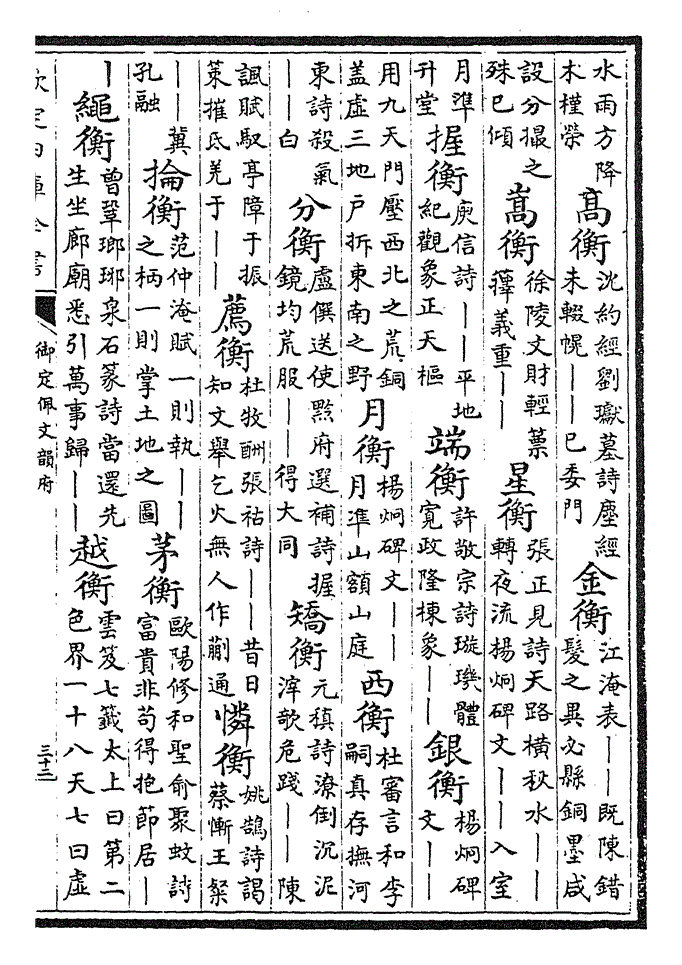 水雨方降木槿榮 高衡 沈約經劉瓛墓詩塵經未輟幌――已委門 金衡 江淹表――既陳錯髮之異必縣銅墨咸
設分撮之殊已傾 嵩衡 徐陵文財輕藁籜義重―― 星衡 張正見詩天路橫秋水――轉夜流楊炯碑文――入室
月準升堂 握衡 庾信詩――平地紀觀象正天樞 端衡 許敬宗詩璇璣體寬政隆棟象―― 銀衡 楊炯碑文――
用九天門壓西北之荒銅蓋虛三地戶拆東南之野 月衡 楊炯碑文――月準山額山庭 西衡 杜審言和李嗣真存撫河
東詩殺氣――白 分衡 盧僎送使黔府選補詩握鏡均荒服――得大同 矯衡 元稹詩潦倒沉泥滓欹危踐――陳
諷賦馭亭障于振策摧氐羌于―― 薦衡 杜牧酬張祜詩――昔日知文舉乞火無人作蒯通 憐衡 姚鵠詩謁蔡慚王粲
――冀孔融 掄衡 范仲淹賦一則執――之柄一則掌土地之圖 茅衡 歐陽修和聖俞聚蚊詩富貴非苟得抱節居―
― 繩衡 曾鞏瑯琊泉石篆詩當還先生坐廊廟悉引萬事歸―― 越衡 雲笈七籤太上曰第二色界一十八天七曰虛
欽定四庫全書 御定佩文韻府 三十三